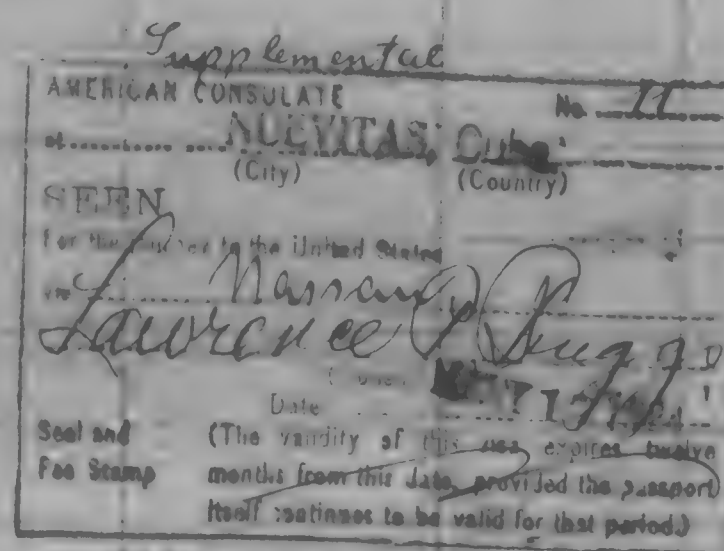 Supplemental
AMERICAN CONSULATE No. 11
at NUEVITAS, Cuba
(City) (Country)
SEEN
For the to the United States
via Nassau
Lawrence P. Briggs
Date
Seal and (The validity of this visa expires twelve
Fee Stamp months from this date, provided the passport
itself continues to be valid for that period.)